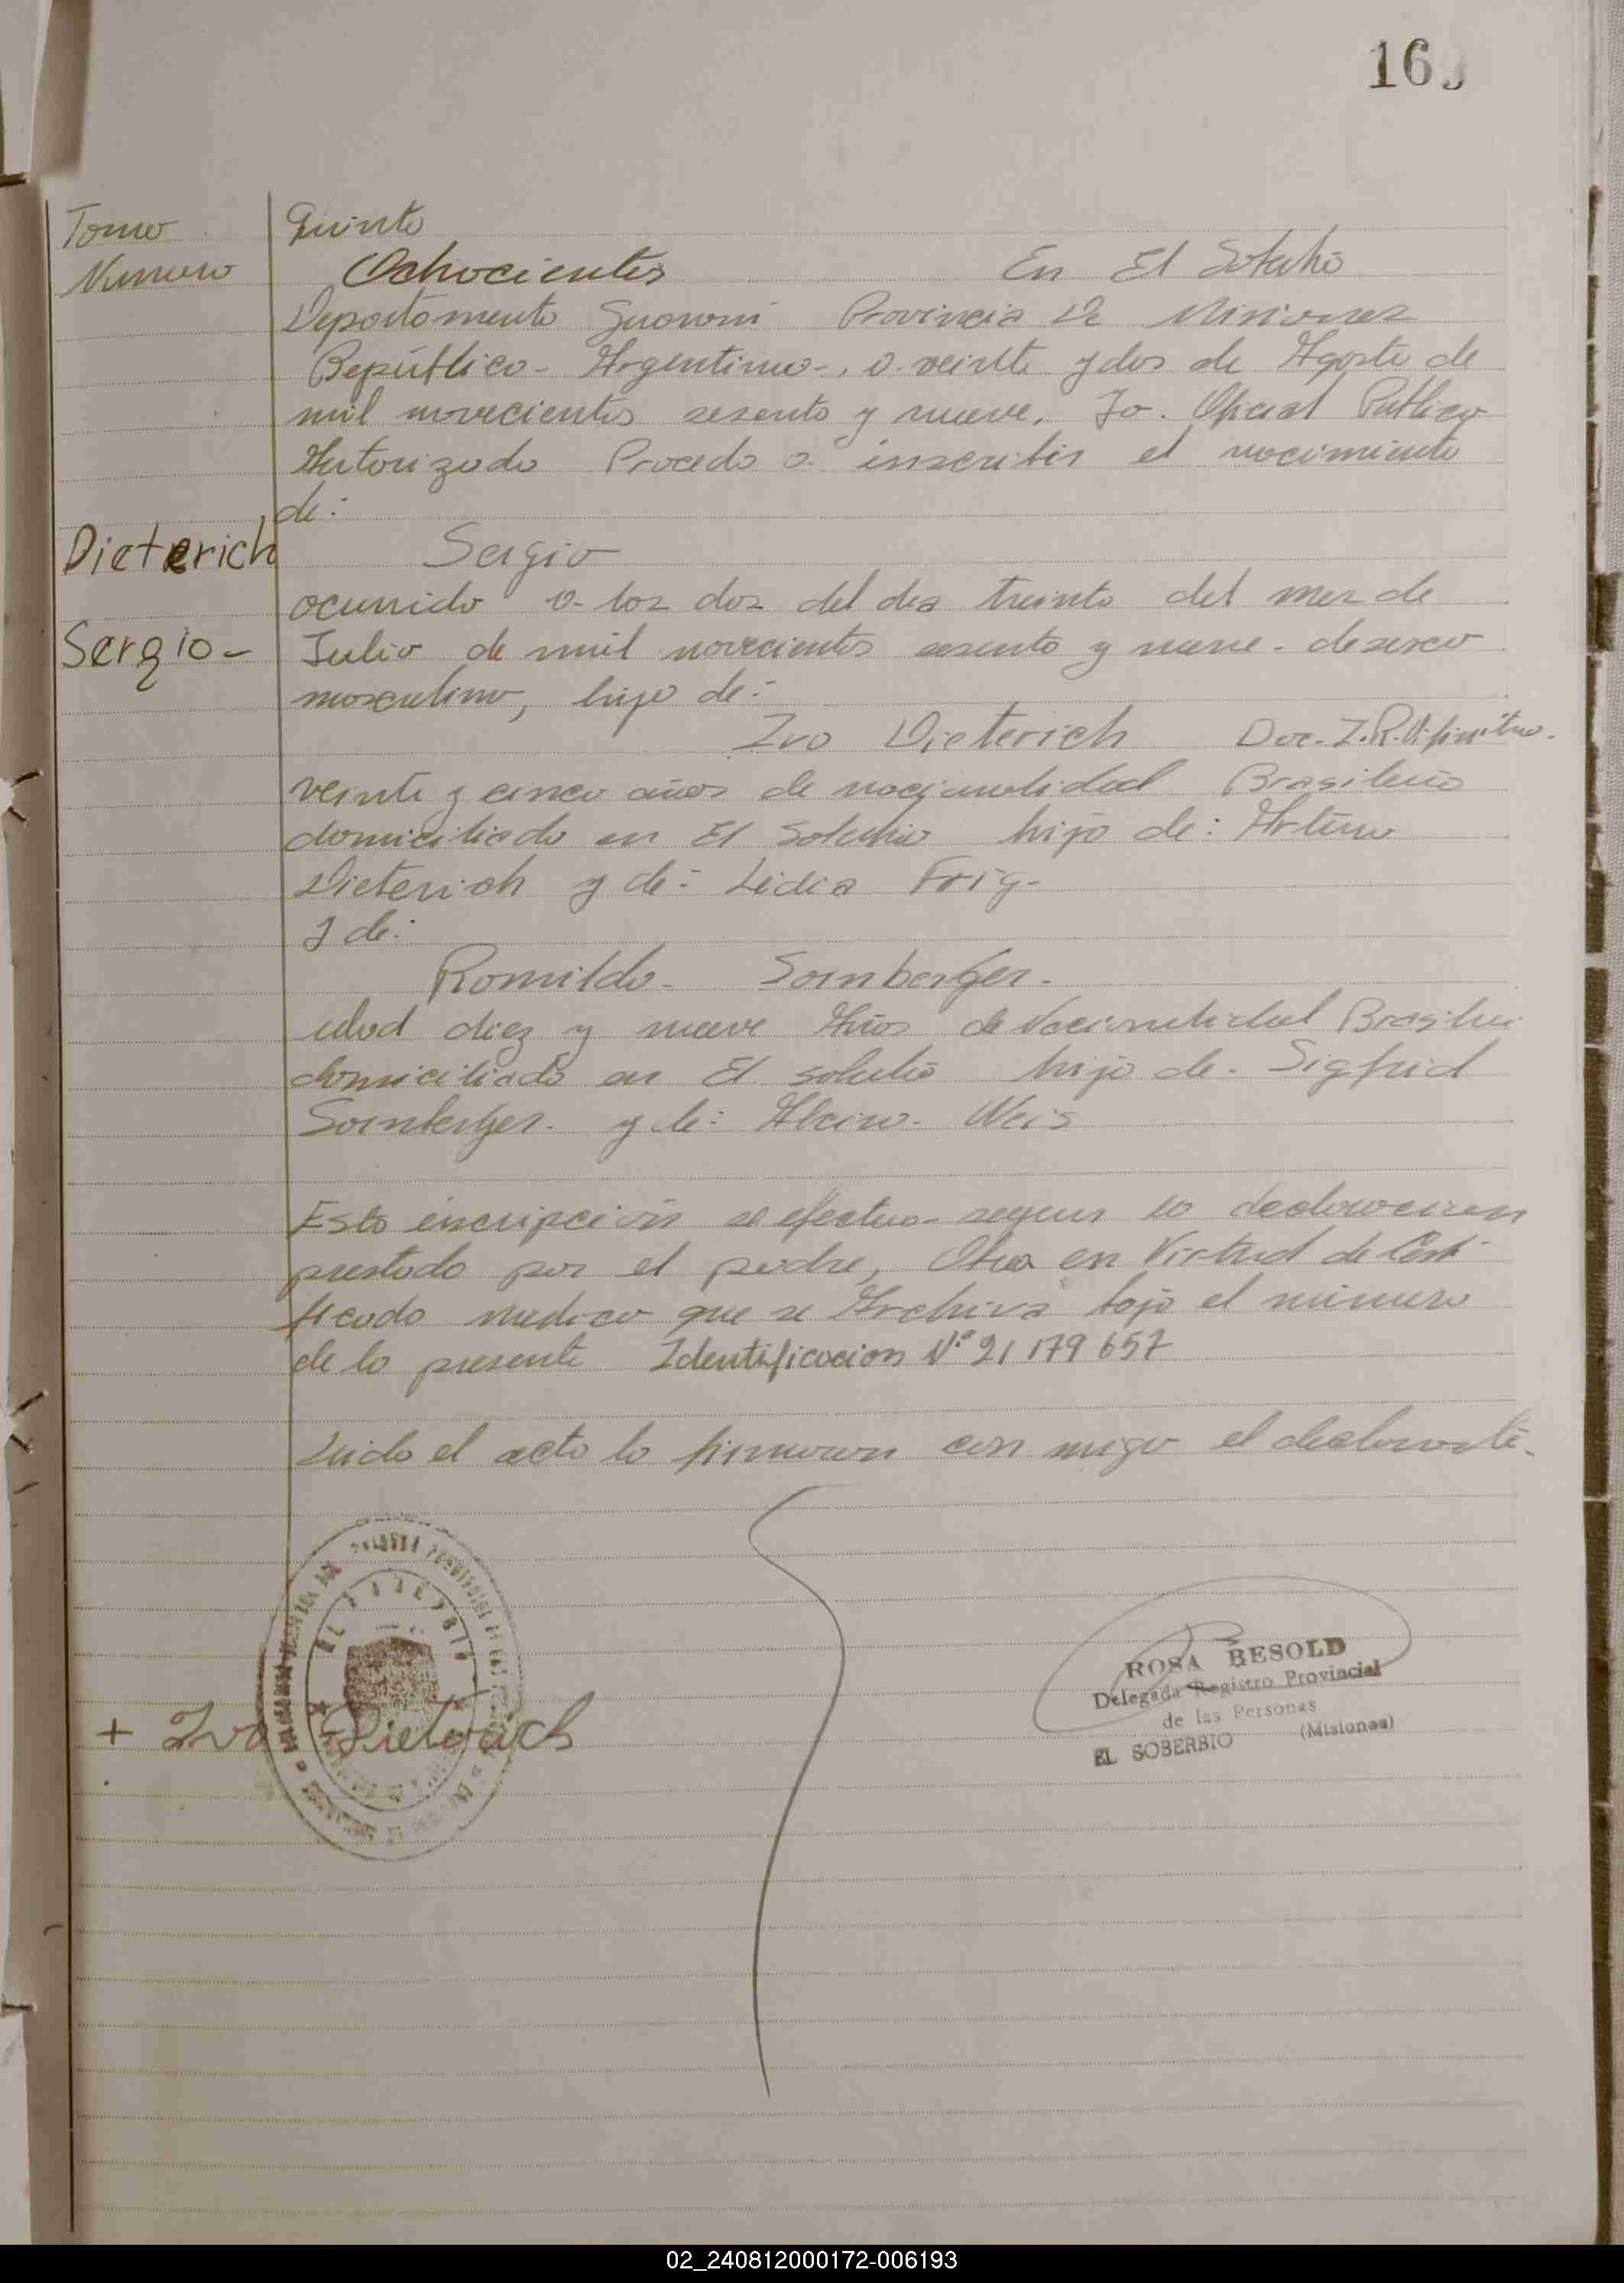 16
Tomo Quinto
Numero Ochocientos En El Soberbio
Departamento Guarani Provincia De Misiones
República Argentina, a veinte y dos de Agosto de
mil novecientos sesenta y nueve. Yo. Oficial Publico
Autorizado Procedo a inscribir el nacimiento
de:
Dieterich Sergio
ocurrido a las dos del dia treinta del mes de
Sergio- Julio de mil novecientos sesenta y nueve. de sexo
masculino, hijo de:
Ivo Dieterich Doc. I.R.
veinte y cinco años de nacionalidad Brasileña
domiciliado en El Soberbio hijo de: Arturo
Dieterich y de: Lidia Frig-
y de:
Romilda- Sornberger-
edad diez y nueve Años de Nacionalidad Brasileña
domiciliada en El Soberbio hija de- Sigfrid
Sornberger- y de: Weis
Esta inscripción se efectua segun la declaracion
prestada por el padre, en Virtud de Certi-
ficado medico que se Archiva bajo el numero
de la presente Identificacion Nº 21 179 657
Leido el acta la firmaron con migo el declarante.
EL SOBERBIO
ROSA BESOLD
Delegada Registro Provincial
de las Personas
EL SOBERBIO (Misiones)
+ Ivo Dieterich
02_240812000172-006193